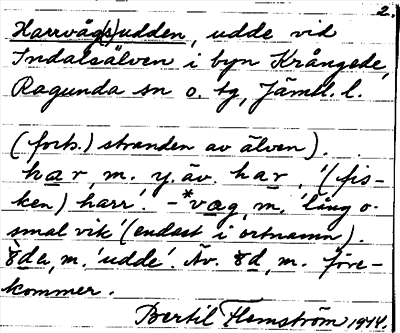 2.
Harrvåg(s)udden, udde vid
Indalsälven i byn Krångede,
Ragunda sn o. tg, Jämtl. l.
(forts.) stranden av älven).
har, m. y. äv. har, '(fis-
ken) harr'. - *vag, m. 'lång o.
smal vik' (endast i ortnamn).
m. 'udde'. Äv. m. före-
kommer.
Bertil Flemström 1974.